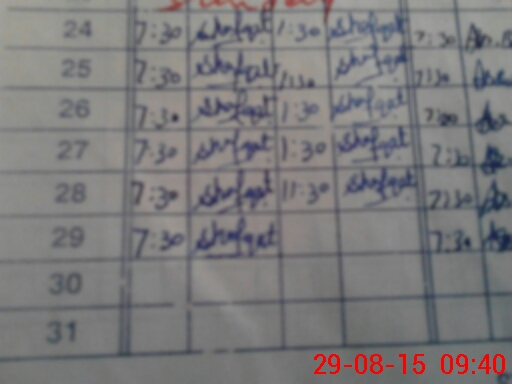 Sunday
24 7:30 Shafqat 1:30 Shafqat 7:30
25 7:30 Shafqat 1:30 Shafqat 7:30
26 7:30 Shafqat 1:30 Shafqat 7:30
27 7:30 Shafqat 1:30 Shafqat 7:30
28 7:30 Shafqat 11:30 Shafqat 7:30
29 7:30 Shafqat 7:30
30
31
29-08-15 09:40